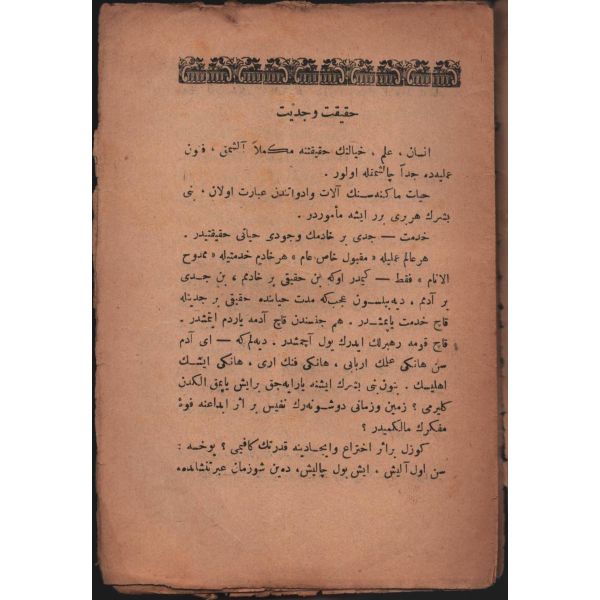 حقیقت و جدیت
انسان ، علم ، خیالنك حقیقتنه مكملاً آلشمق ، فنون
عملیه‌ده جداً چالشمقله اولور .
حیات ماكنه‌سنك آلات وادواتندن عبارت اولان ، بنی
بشرك هربری برر ایشه مأموردر .
خدمت — جدی بر خادمك وجودی حیاتی حقیقتیدر .
هرعالم عملیله « مقبول خاص عام » هرخادیم خدمتیله « ممدوح
الانام » فقط — كیمدر اوكه بن حقیقی بر خادمم ، بن جدی
بر آدمم ، دیه‌بیلسون عجبكه مدت حیاتنده حقیقی بر جدیتله
قاچ خدمت یاپمشدر . هم جنسندن قاچ آدمه یاردم ایتمشدر .
قاچ قومه رهبرلك ایدرك یول آچمشدر . دیه‌لم كه — ای آدم
سن هانكی علمك اربابی ، هانكی فنك اری ، هانكی ایشك
اهلیسك . بتون بنی بشرك ایشنه یارایه‌جق برایش یاپمق الكدن
كلیرمی ؟ زمین وزمانی دوشونه‌رك نفیس بر اثر ابداعنه قوهٔ
مفكرك مالكمیدر ؟
كوزل براثر اختراع وایجادینه قدرتك كافیمی ؟ یوخسه :
سن اول آلیش . ایش بول چالیش، ده‌ین شوزمان عبرتنشانده،